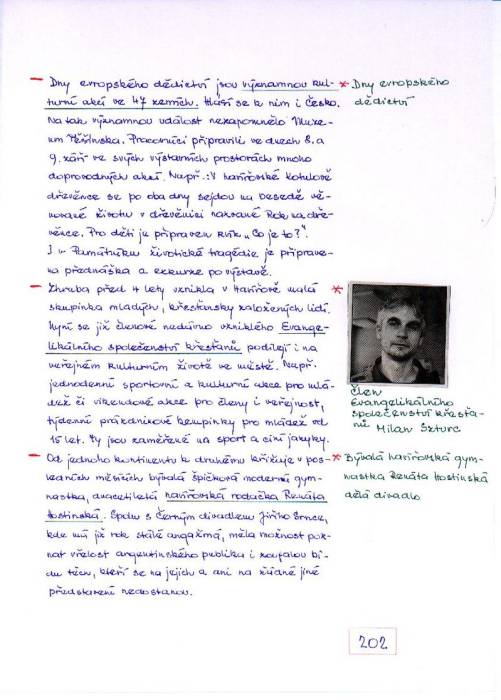 Dny evropského dědictví jsou významnou kul-
turní akcí ve 47 zemích. Hlásí se k nim i Česko.
Na tak významnou událost nezapomnělo Muze-
um Těšínska. Pracovníci připravili ve dnech 8. a
9. září ve svých výstavních prostorách mnoho
doprovodných akcí. Např.: V havířovské Kotulově
dřevěnce se po oba dny sejdou na besedě vě-
nované životu v dřevěnici nazvané Rok na dře-
věnce. Pro děti je připraven kvík „Co je to?“.
I v Památníku životické tragédie je připrave-
na přednáška a exkurze po výstavě.
Zhruba před 4 lety vznikla v Havířově malá
skupinka mladých, křesťansky založených lidí.
Nyní se již členové nedávno vzniklého Evange-
likálního společenství křesťanů podílejí i na
veřejném kulturním životě ve městě. Např.
jednodenní sportovní a kulturní akce pro mlá-
dež či víkendové akce pro členy i veřejnost,
týdenní prázdninové kempinky pro mládež od
15 let. Ty jsou zaměřené na sport a
jazyky.
Od jednoho kontinentu k druhému křižuje v pos-
ledních měsících bývalá špičková moderní gym-
nastka, dvacetiletá havířovská rodačka Renáta
Hostinská. Spolu s Černým divadlem Jiřího Srnce,
kde má již rok stálé angažmá, měla možnost poz-
nat vřelost argentinského publika i zoufalou bí-
du těch, kteří se na jejich a ani na žádné jiné
představení nedostanou.
* Dny evropského
dědictví
* Člen
Evangelikálního
společenství křesťa-
nů Milan Szturc
* Bývalá havířovská gym-
nastka Renáta Hostinská
dělá divadlo
202